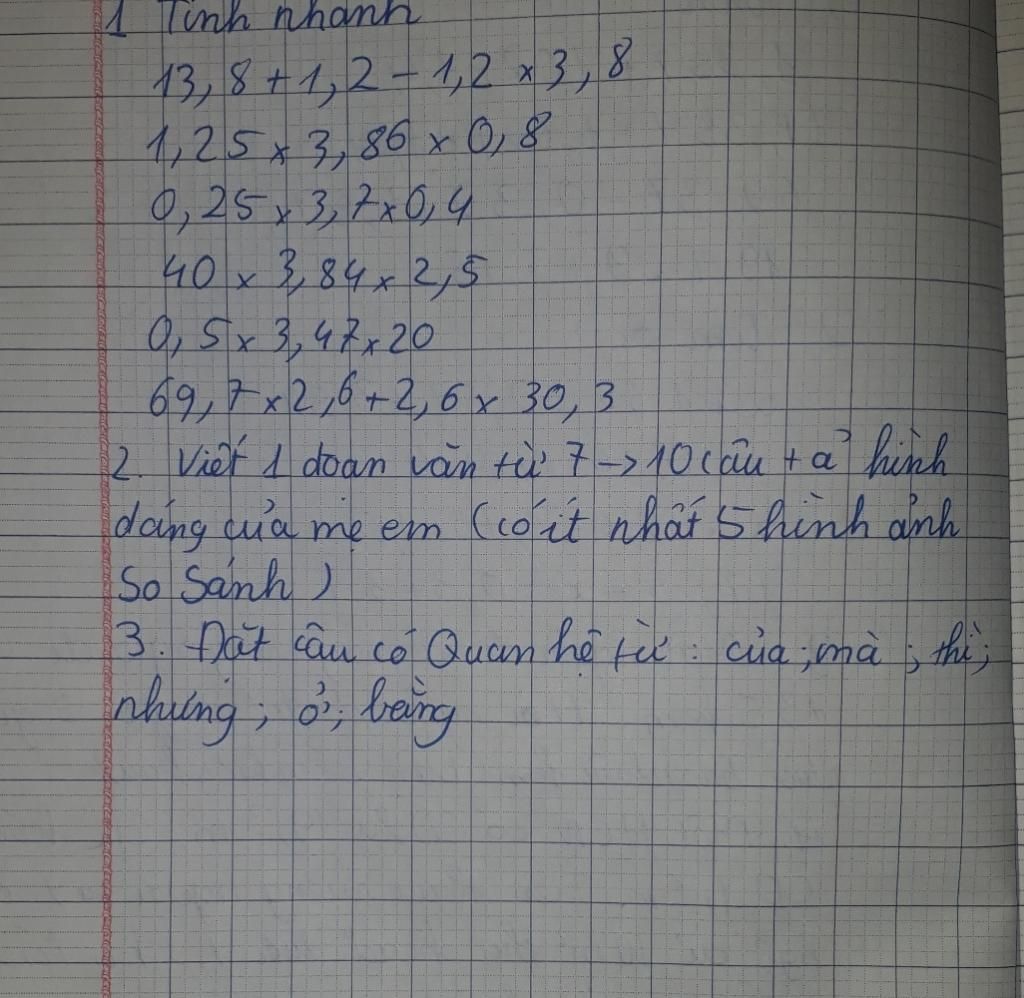 1 Tính nhanh
13,8 + 1,2 - 1,2 x 3,8
1,25 x 3,86 x 0,8
0,25 x 3,7 x 0,4
40 x 3,84 x 2,5
0,5 x 3,47 x 20
69,7 x 2,6 + 2,6 x 30,3
2. Viết 1 đoạn văn từ 7 -> 10 câu tả hình
dáng của mẹ em (có ít nhất 5 hình ảnh
so sánh)
3. Đặt câu có Quan hệ từ : của ; mà ; thì ;
nhưng ; ở ; bằng